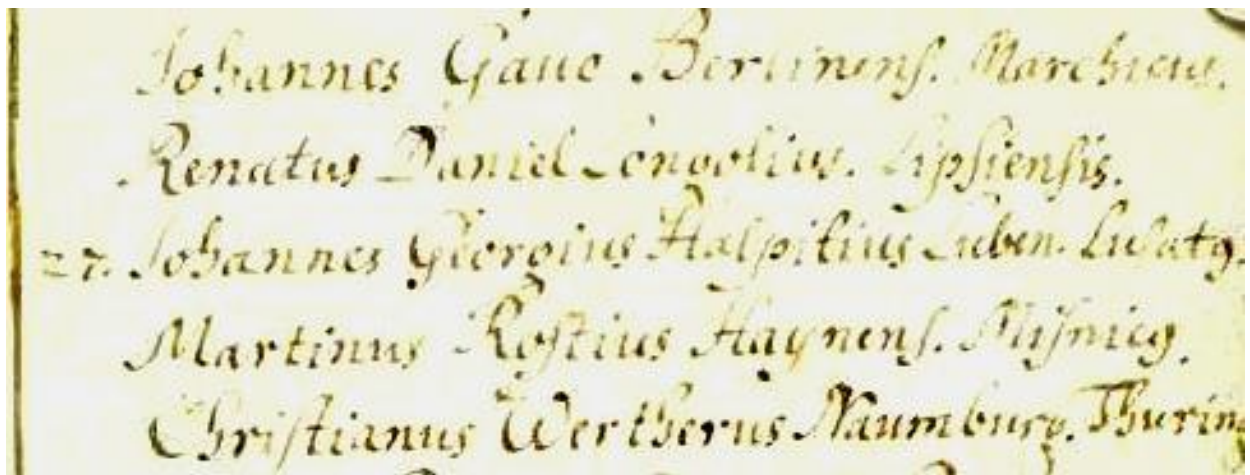 Johannes Gaue Berlinens. Marchicus.
Renatus Daniel Longolius. Lipsiensis.
27. Johannes Georgius Halpitius Luben. Lusatg.
Martinus Rostius Haynens. Misnicg.
Christianus Wertherus Naumburg. Thuring